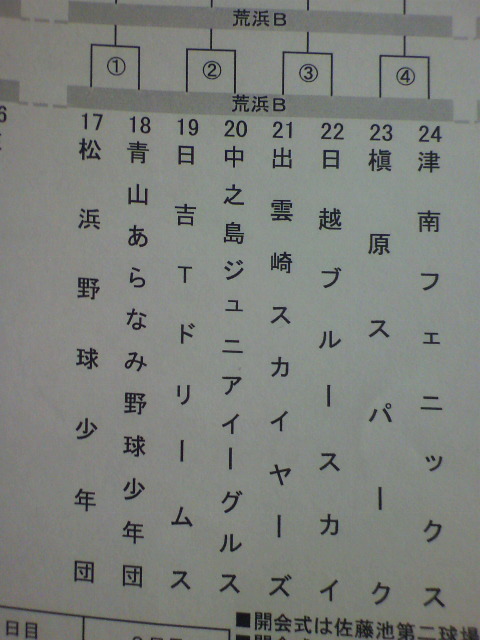 荒浜B
① ② ③ ④
荒浜B
17 松浜野球少年団
18 青山あらなみ野球少年団
19 日吉Tドリームス
20 中之島ジュニアイーグルス
21 出雲崎スカイヤーズ
22 日越ブルースカイ
23 槇原スパーク
24 津南フェニックス
日目
■開会式は佐藤池第二球場